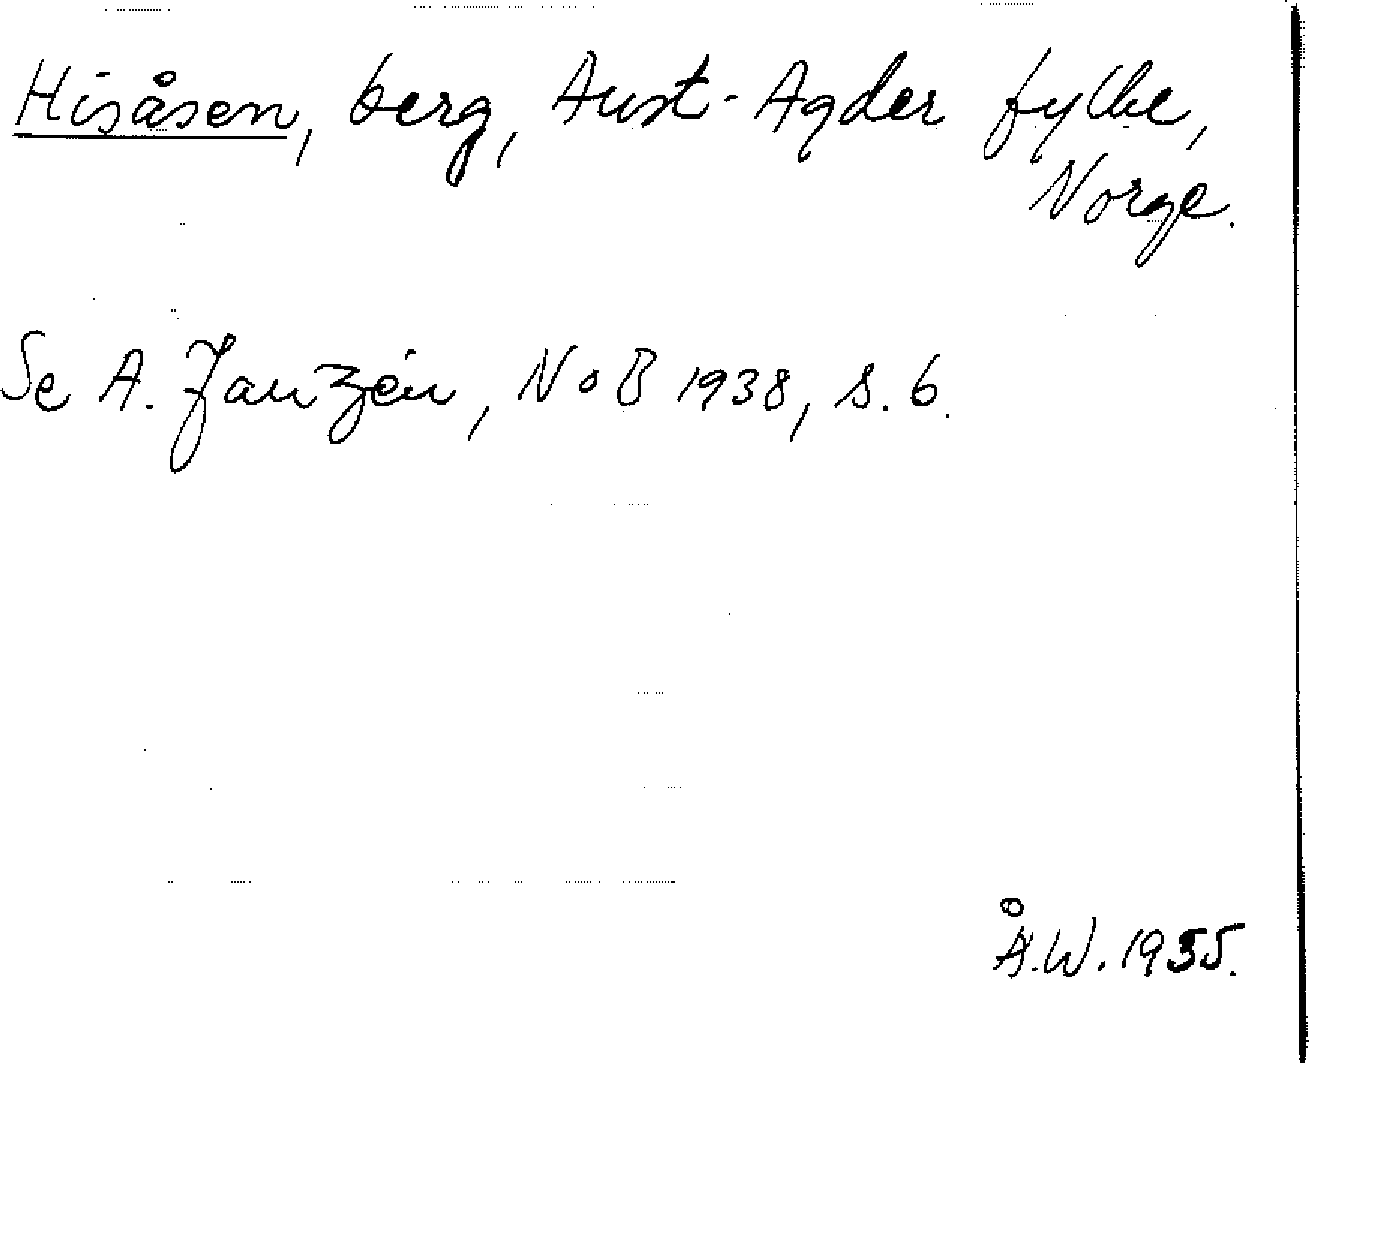 Hisåsen, berg, Aust-Agder fylke,
Norge.
Se A. Janzén, NoB 1938, s. 6.
Å.W. 1955.